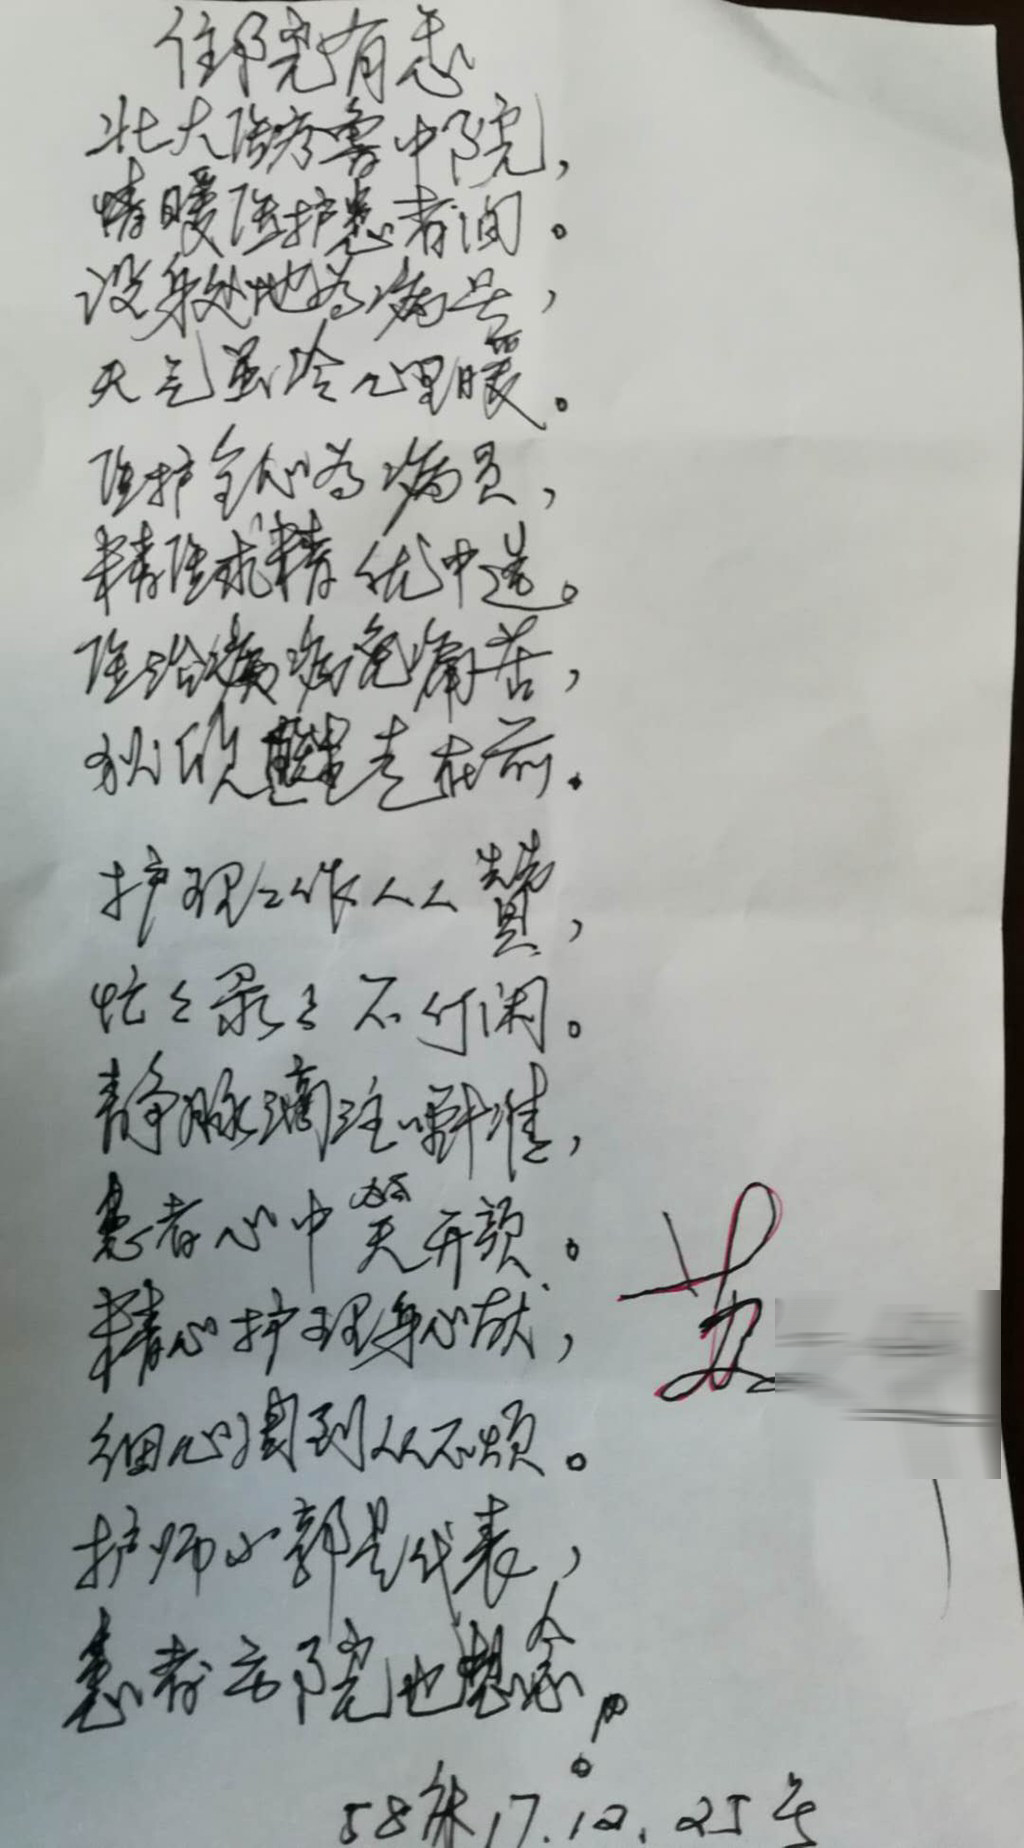 住院有感
北大医疗鲁中院，
情暖医护患者间。
设身处地为病号，
天气虽冷心里暖。
医护全心为病员，
精医求精优中选。
医治病免痛苦，
走在前。
护理工作人人赞，
忙忙录录不付闲。
静脉滴注准，
患者心中笑开颜。
精心护理身心献，
细心周到从不烦。
护师小郭是代表，
患者出院也想念。
苏
58床17.12.25号